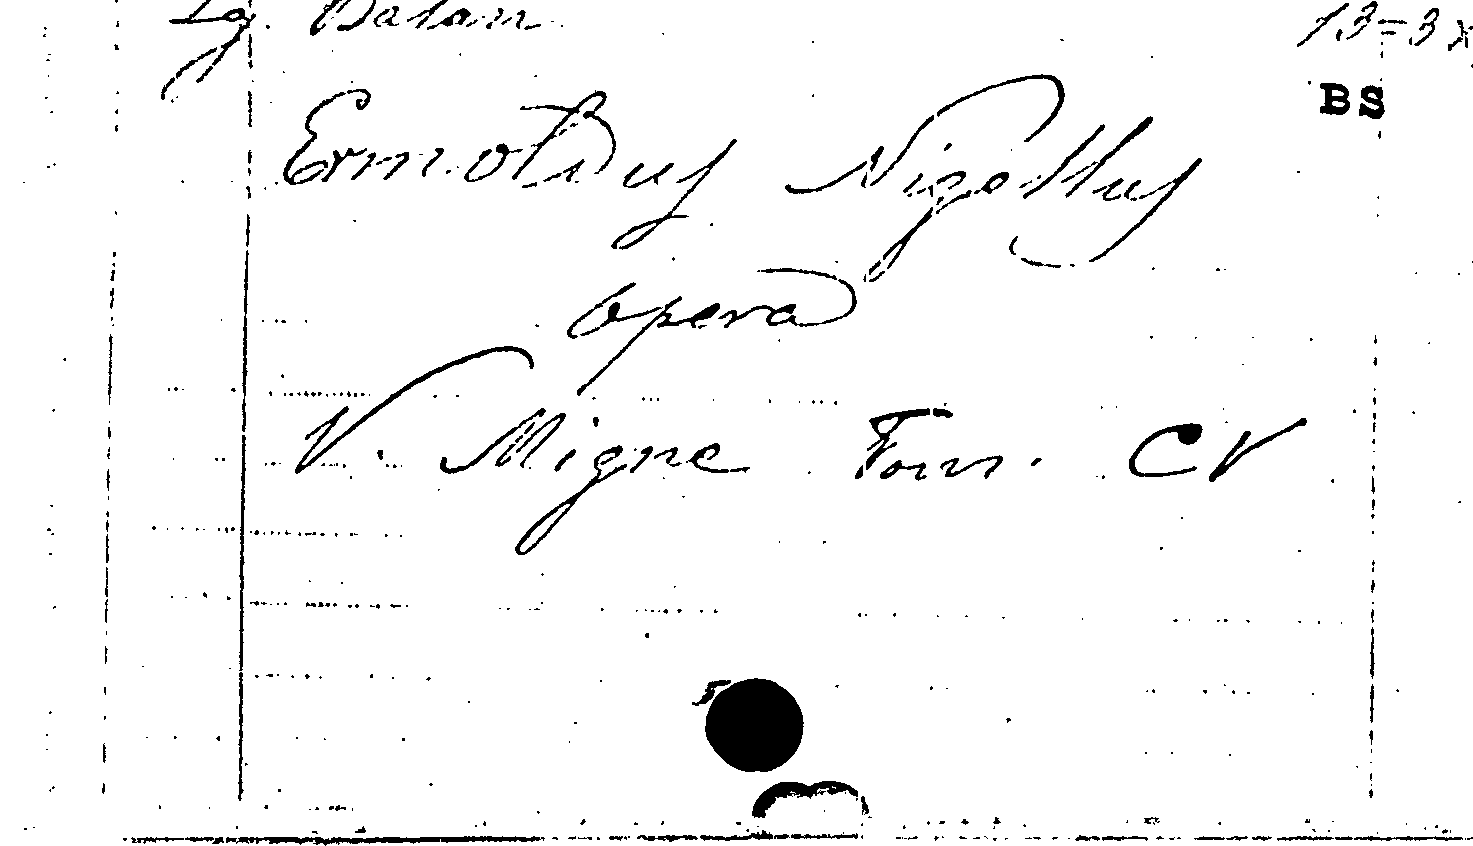 Lg. Balan 13=3x
BS
Ermoldus Nigellus
opera
V. Migne Tom. CV
5